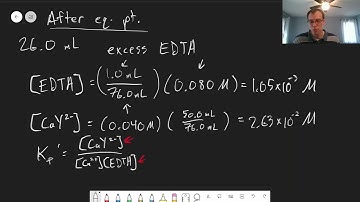 After eq. pt.
26.0 mL excess EDTA
[EDTA] = (1.0 mL / 76.0 mL) (0.080 M) = 1.05×10⁻³ M
[CaY²⁻] = (0.040 M) (50.0 mL / 76.0 mL) = 2.63×10⁻² M
K_f' = [CaY²⁻] / [Ca²⁺][EDTA]